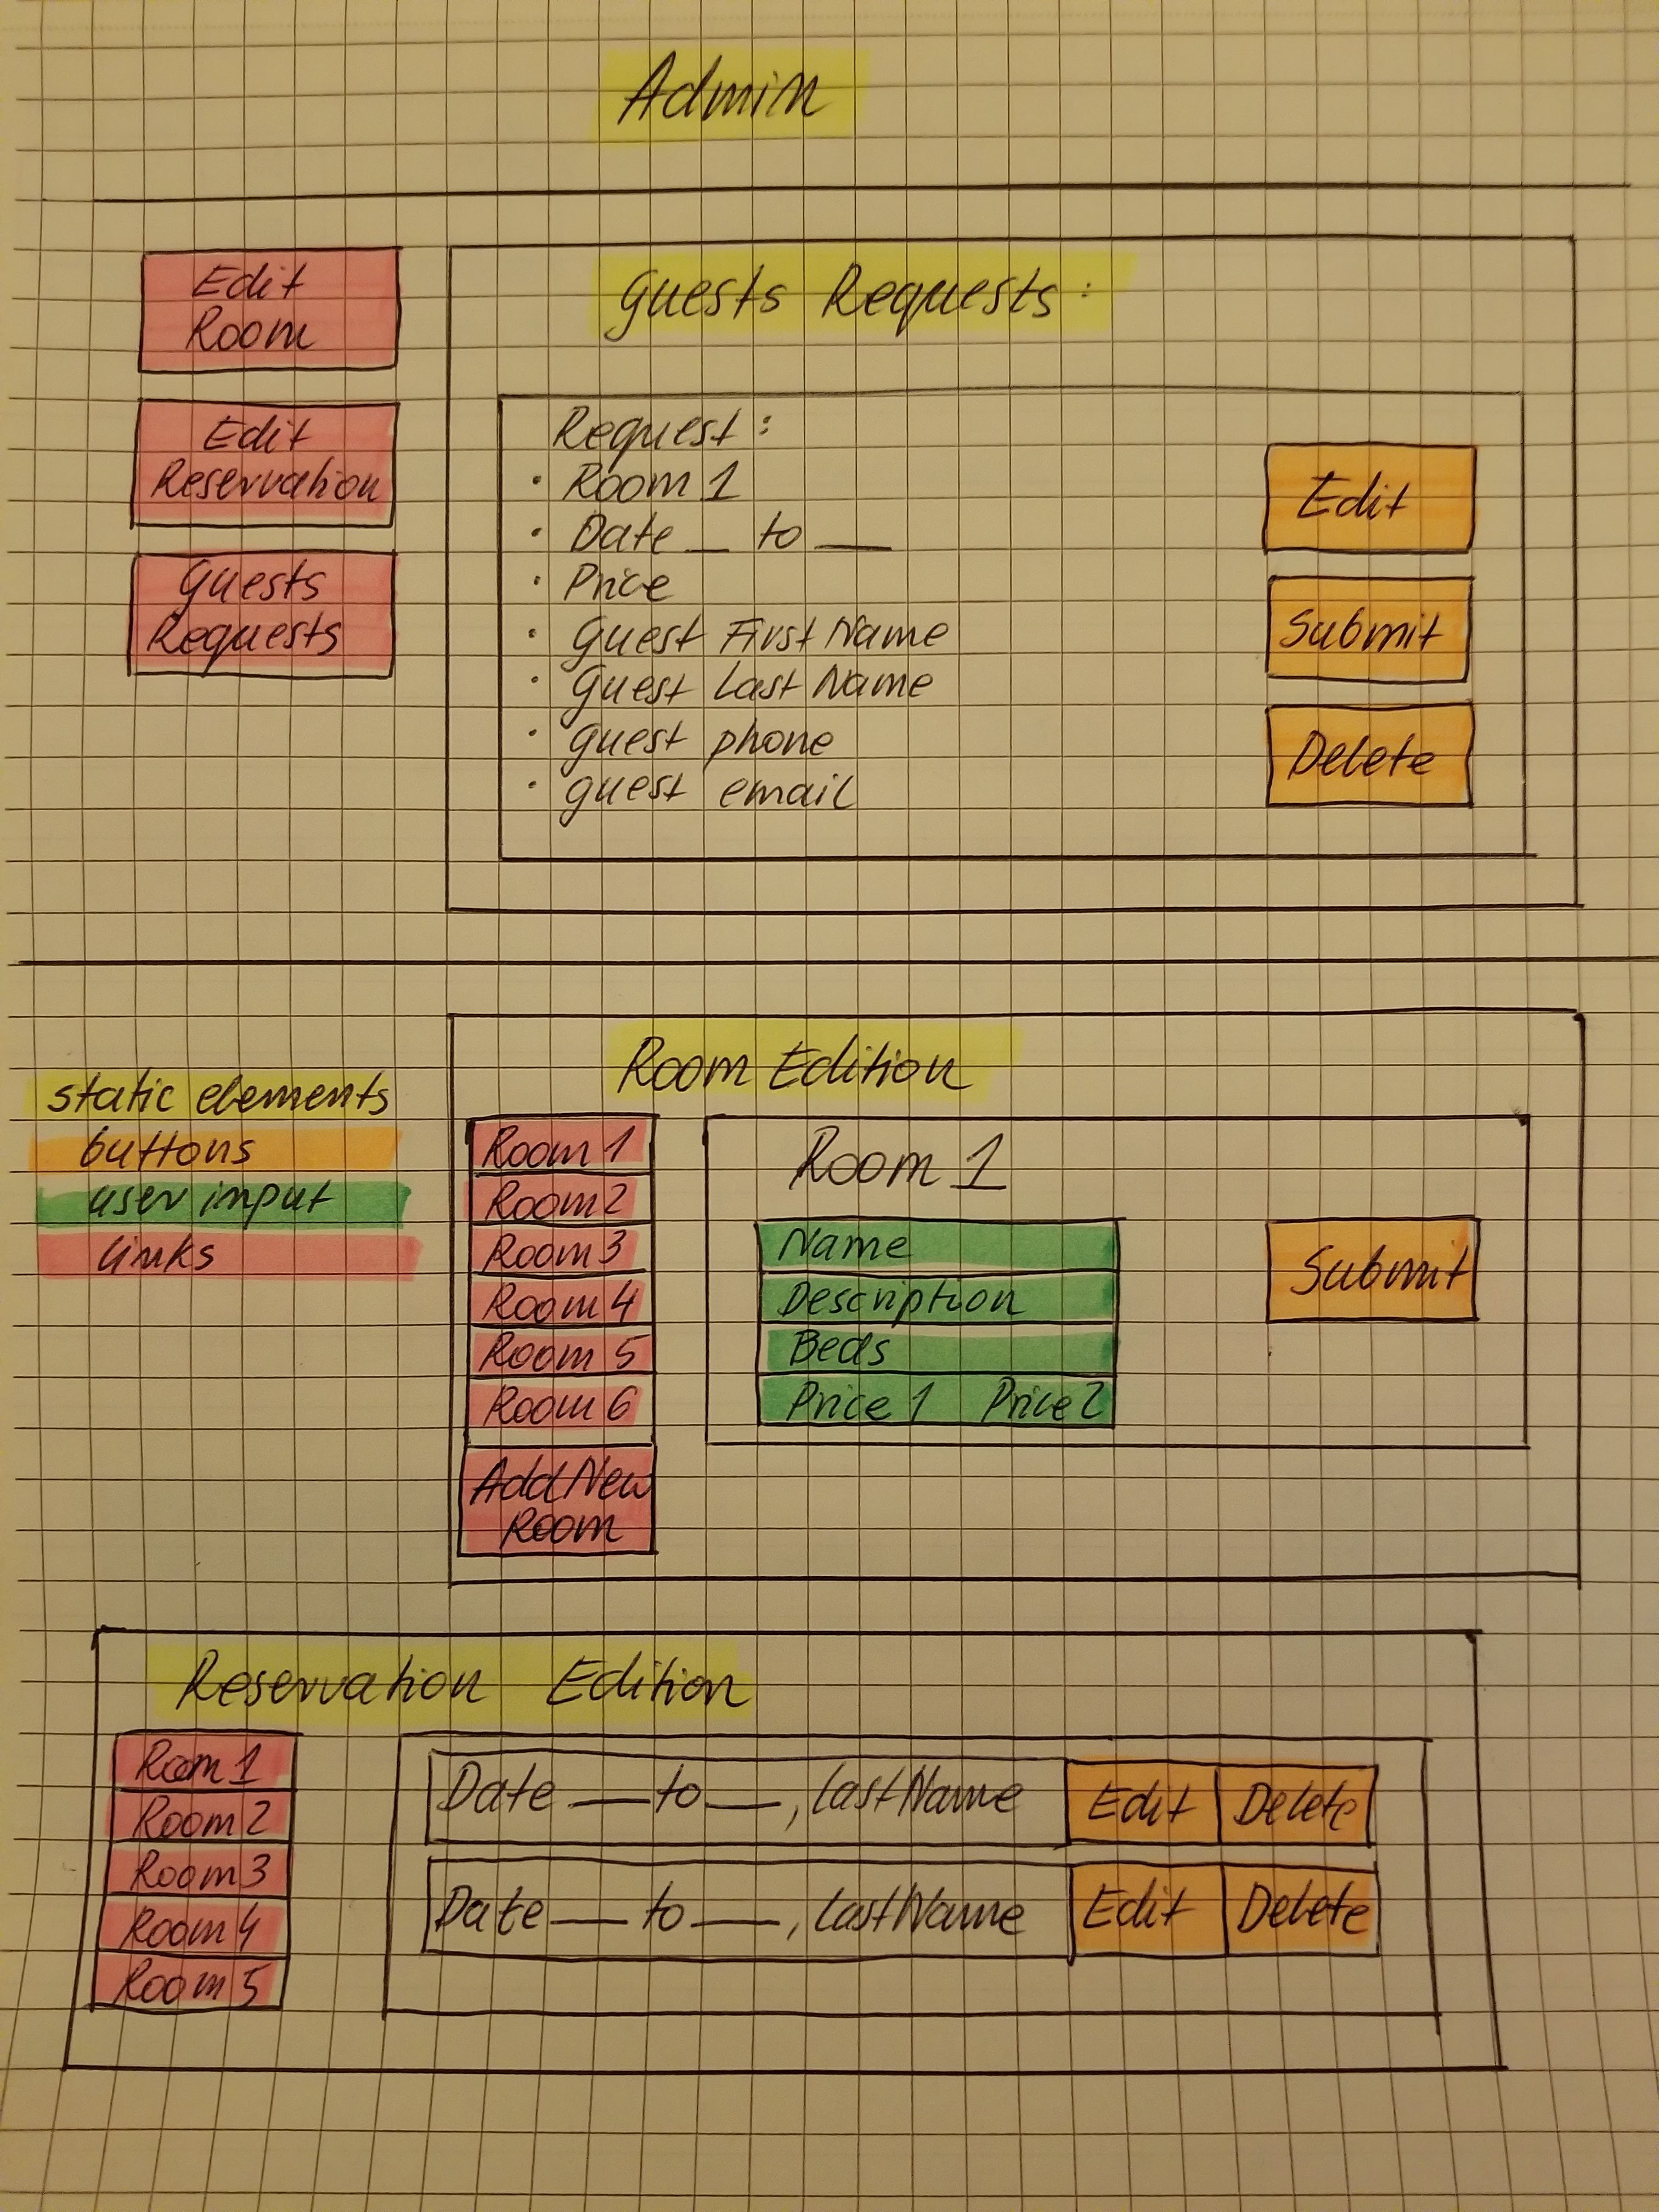 Admin
Edit
Room
Edit
Reservation
Guests
Requests
Guests Requests:
Request:
• Room 1
• Date __ to ___
• Price
• Guest First Name
• Guest Last Name
• guest phone
• guest email
Edit
Submit
Delete
static elements
buttons
user input
links
Room Edition
Room 1
Room 2
Room 3
Room 4
Room 5
Room 6
Add New
Room
Room 1
Name
Description
Beds
Price 1 Price 2
Submit
Reservation Edition
Room 1
Room 2
Room 3
Room 4
Room 5
Date ___ to ___, LastName Edit Delete
Date ___ to ___, LastName Edit Delete